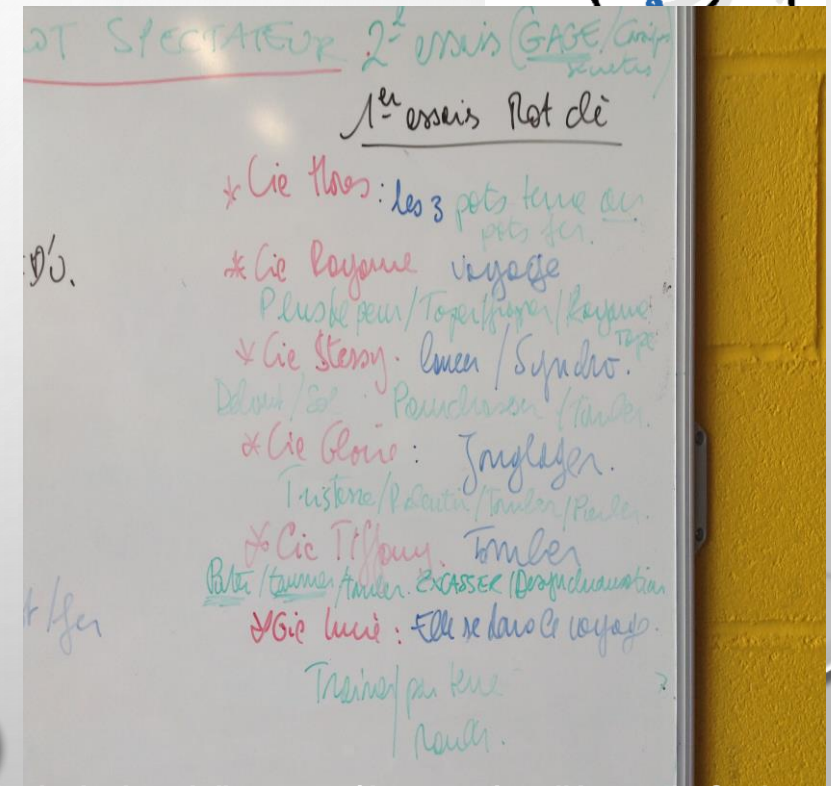 OT SPECTATEUR 2è essais (GAGE/
1er essais Mot clé
* Cie Flores : les 3 pots terre ou
pots fer.
D'O.
* Cie Royaume voyage
Plus de peur / Taper / / Royaume
Tape
* Cie Stessy. lancer / Synchro.
Debout / Sol Pourchasser / Tomber.
* Cie Gloire : Jonglager.
Tristesse / Ralentir / Tomber / Parler.
* Cie Tiffany. Tomber
/ tourner / tomber. EXCASSER / Desynchronisation
t / fer
* Cie Lucie : Elle se dans Ce voyage.
Trainer / par terre
/ rouler.